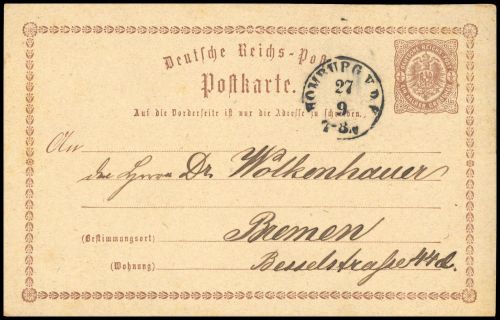 Deutsche Reichs-Post
Postkarte.
HOMBURG V.D.H.
27
9
7-8 N
Auf die Vorderseite ist nur die Adresse zu schreiben.
An
den Herrn Dr. Wolkenhauer
(Bestimmungsort) Bremen
(Wohnung) Besselstrasse 44d.